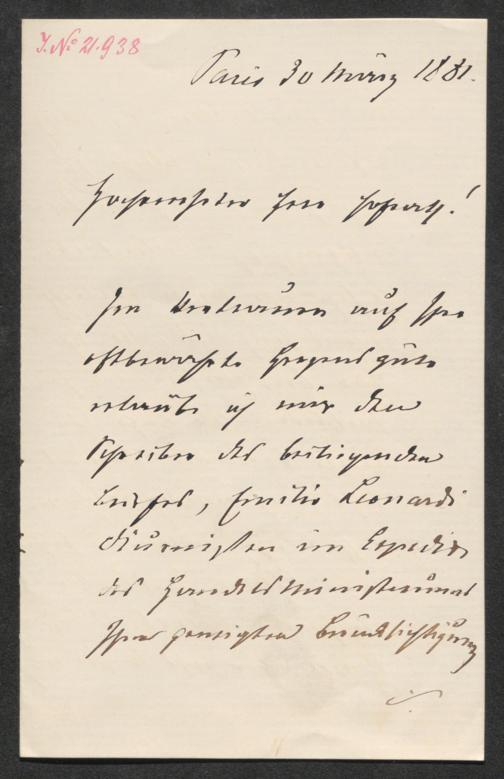 J. № 21.938
Paris 30 März 1881.
Hochverehrter Herr Hofrath!
Im Vertrauen auf Ihre
oftbewährte Herzensgüte
erlaube ich mir den
Schreiber des beiliegenden
Briefes, Emilio Leonardi
Diurnisten im Expedite
des Handelsministeriums
Ihrer geneigten Berücksichtigung